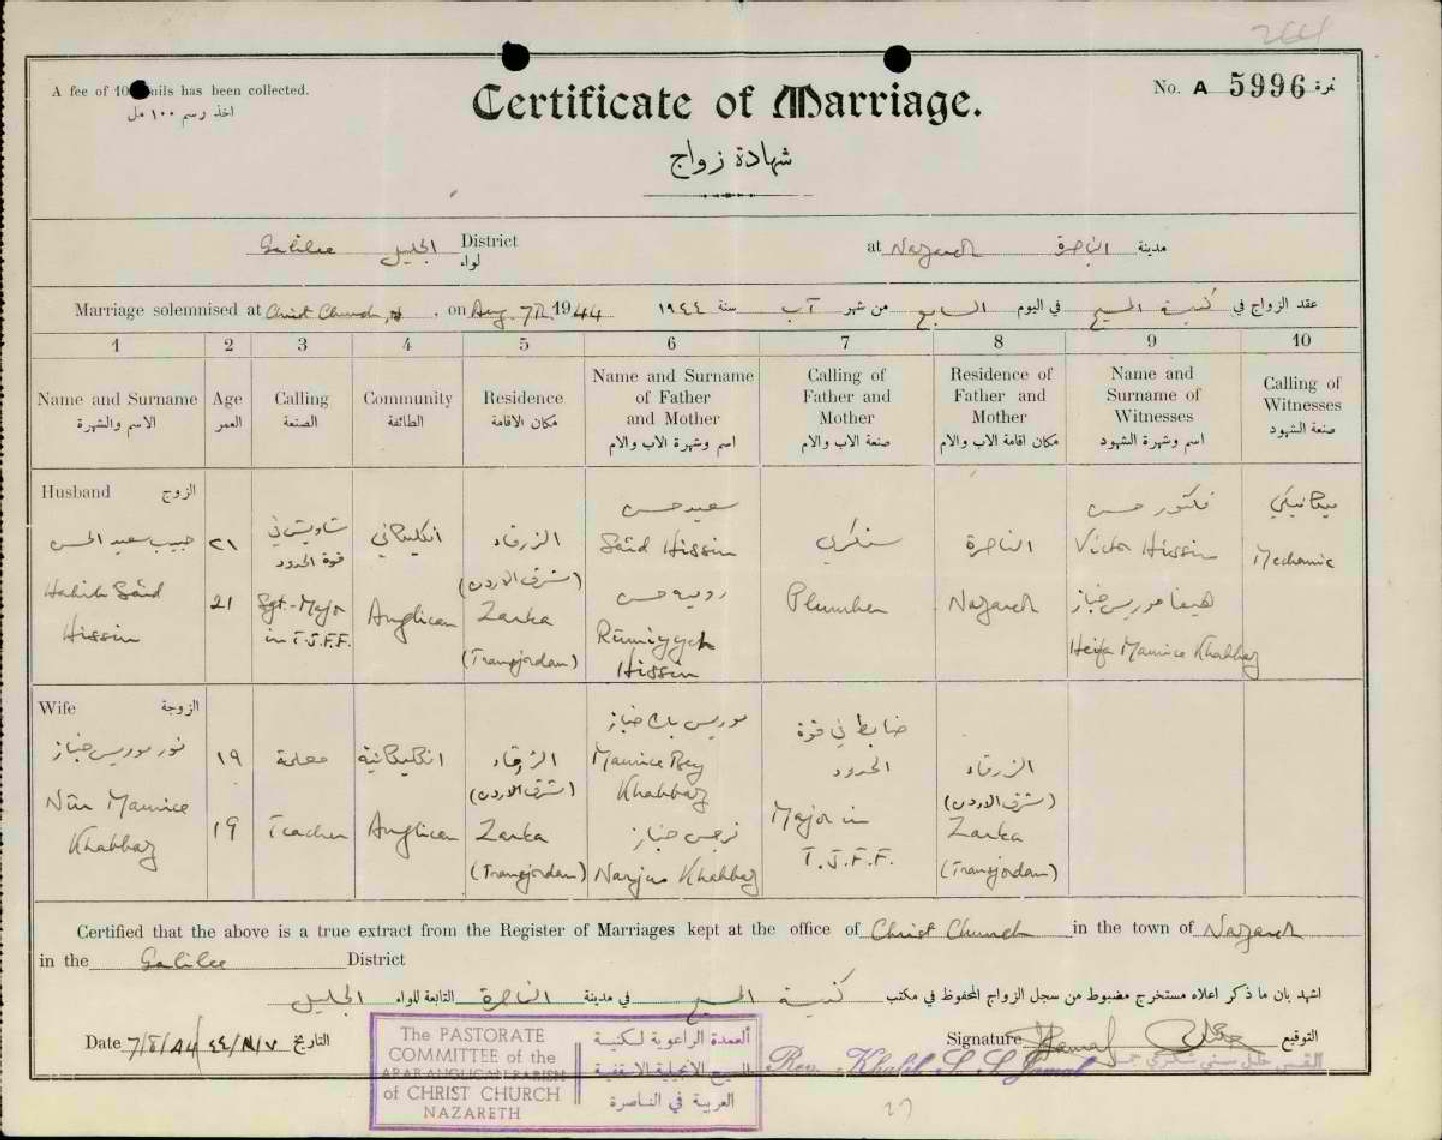 264
A fee of 100 mils has been collected.
اخذ رسم ١٠٠ مل
Certificate of Marriage.
No. A 5996 نمرة
شهادة زواج
Galilee الجليل District لواء
at Nazareth الناصرة مدينة
Marriage solemnised at Christ Church, on Aug. 7th 1944
عقد الزواج في كنيسة المسيح في اليوم السابع من شهر آب سنة ١٩٤٤
1 2 3 4 5 6 7 8 9 10
Name and Surname
الاسم والشهرة
Age
العمر
Calling
الصنعة
Community
الطائفة
Residence
مكان الاقامة
Name and Surname
of Father
and Mother
اسم وشهرة الاب والام
Calling of
Father and
Mother
صنعة الاب والام
Residence of
Father and
Mother
مكان اقامة الاب والام
Name and
Surname of
Witnesses
اسم وشهرة الشهود
Calling of
Witnesses
صنعة الشهود
Husband الزوج
حبيب سعيد الحسن
Habib Saîd
Hissin
٢١
21
شاويش في
قوة الحدود
Sgt.-Major
in T.J.F.F.
انكليكاني
Anglican
الزرقاء
(شرق الاردن)
Zarka
(Transjordan)
سعيد حسن
Saîd Hissin
روميه حسن
Rūmiyyeh
Hissin
سنكري
Plumber
الناصرة
Nazareth
فكتور حسن
Victor Hissin
هيفا موريس خباز
Heifa Maurice Khabbaz
ميكانيكي
Mechanic
Wife الزوجة
نور موريس خباز
Nūr Maurice
Khabbaz
١٩
19
معلمة
Teacher
انكليكانية
Anglican
الزرقاء
(شرق الاردن)
Zarka
(Transjordan)
موريس بك خباز
Maurice Bey
Khabbaz
نرجس خباز
Narjis Khabbaz
ضابط في قوة
الحدود
Major in
T.J.F.F.
الزرقاء
(شرق الاردن)
Zarka
(Transjordan)
Certified that the above is a true extract from the Register of Marriages kept at the office of Christ Church in the town of Nazareth
in the Galilee District
اشهد بان ما ذكر اعلاه مستخرج مضبوط من سجل الزواج المحفوظ في مكتب كنيسة المسيح في مدينة الناصرة التابعة للواء الجليل
Date 7/8/44 ٤٤/٨/٧ التاريخ
Signature التوقيع
Rev. Khalil S. S. Jamal
The PASTORATE
COMMITTEE of the
ARAB ANGLICAN PARISH
of CHRIST CHURCH
NAZARETH
العمدة الراعوية لكنيسة
المسيح الانجيلية الاسقفية
العربية في الناصرة